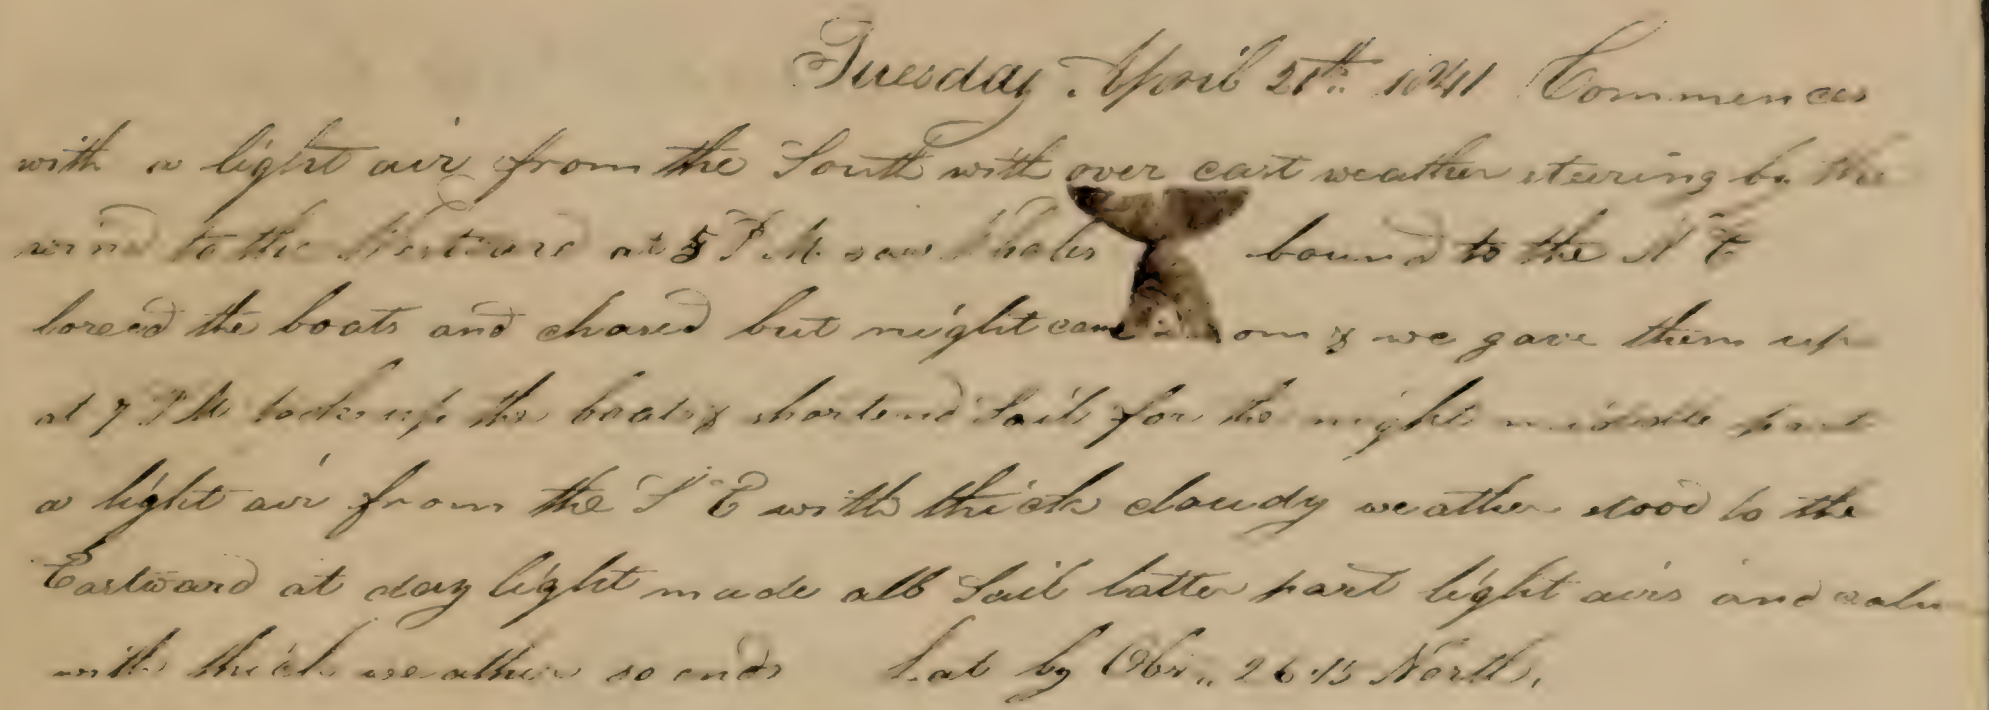 Tuesday April 21th 1841 Commences
with a light air from the South with over cast weather steering by the
wind to the Westward at 5 P.M. saw Whales bound to the N E
lored the boats and chased but night came on & we gave them up
at 7 P M took up the boats & shortend Sail for the night middle part
a light air from the S E with thick cloudy weather stood to the
Eastward at day light made all Sail latter part light airs and calm
with thick weather so ends Lat by Obs,, 26.13 North,